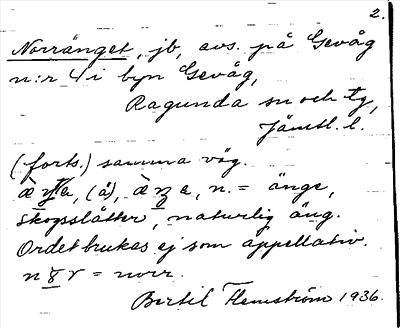 2.
Norränget, jb, avs. på Gevåg
n:r 4 i byn Gevåg,
Ragunda sn och tg,
Jämtl. l.
(forts.) samma väg.
(å), n. = änge,
skogsslåtter, naturlig äng.
Ordet brukas ej som appellativ.
= norr.
Bertil Flemström 1936.